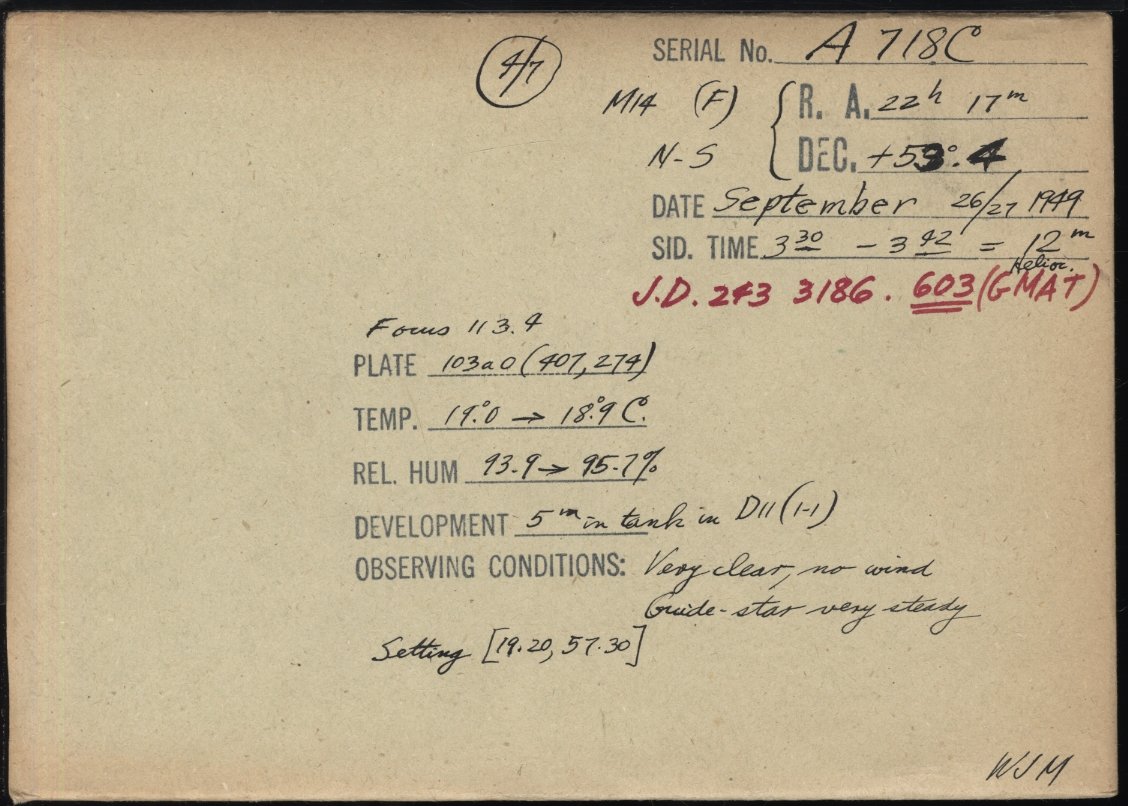 4/7
SERIAL No. A 718C
M14 (F) R. A. 22h 17m
N-S DEC. +53°.4
DATE September 26/27 1949
SID. TIME 3 30 - 3 42 = 12 m
Helioc.
J.D. 243 3186.603 (GMAT)
Focus 113.4
PLATE 103a0 (407, 274)
TEMP. 19.°0 → 18.°9 C.
REL. HUM 93.9 → 95.7%
DEVELOPMENT 5m in tank in D11 (1-1)
OBSERVING CONDITIONS: Very clear, no wind
Guide-star very steady
Setting [19.20, 57.30]
WJM